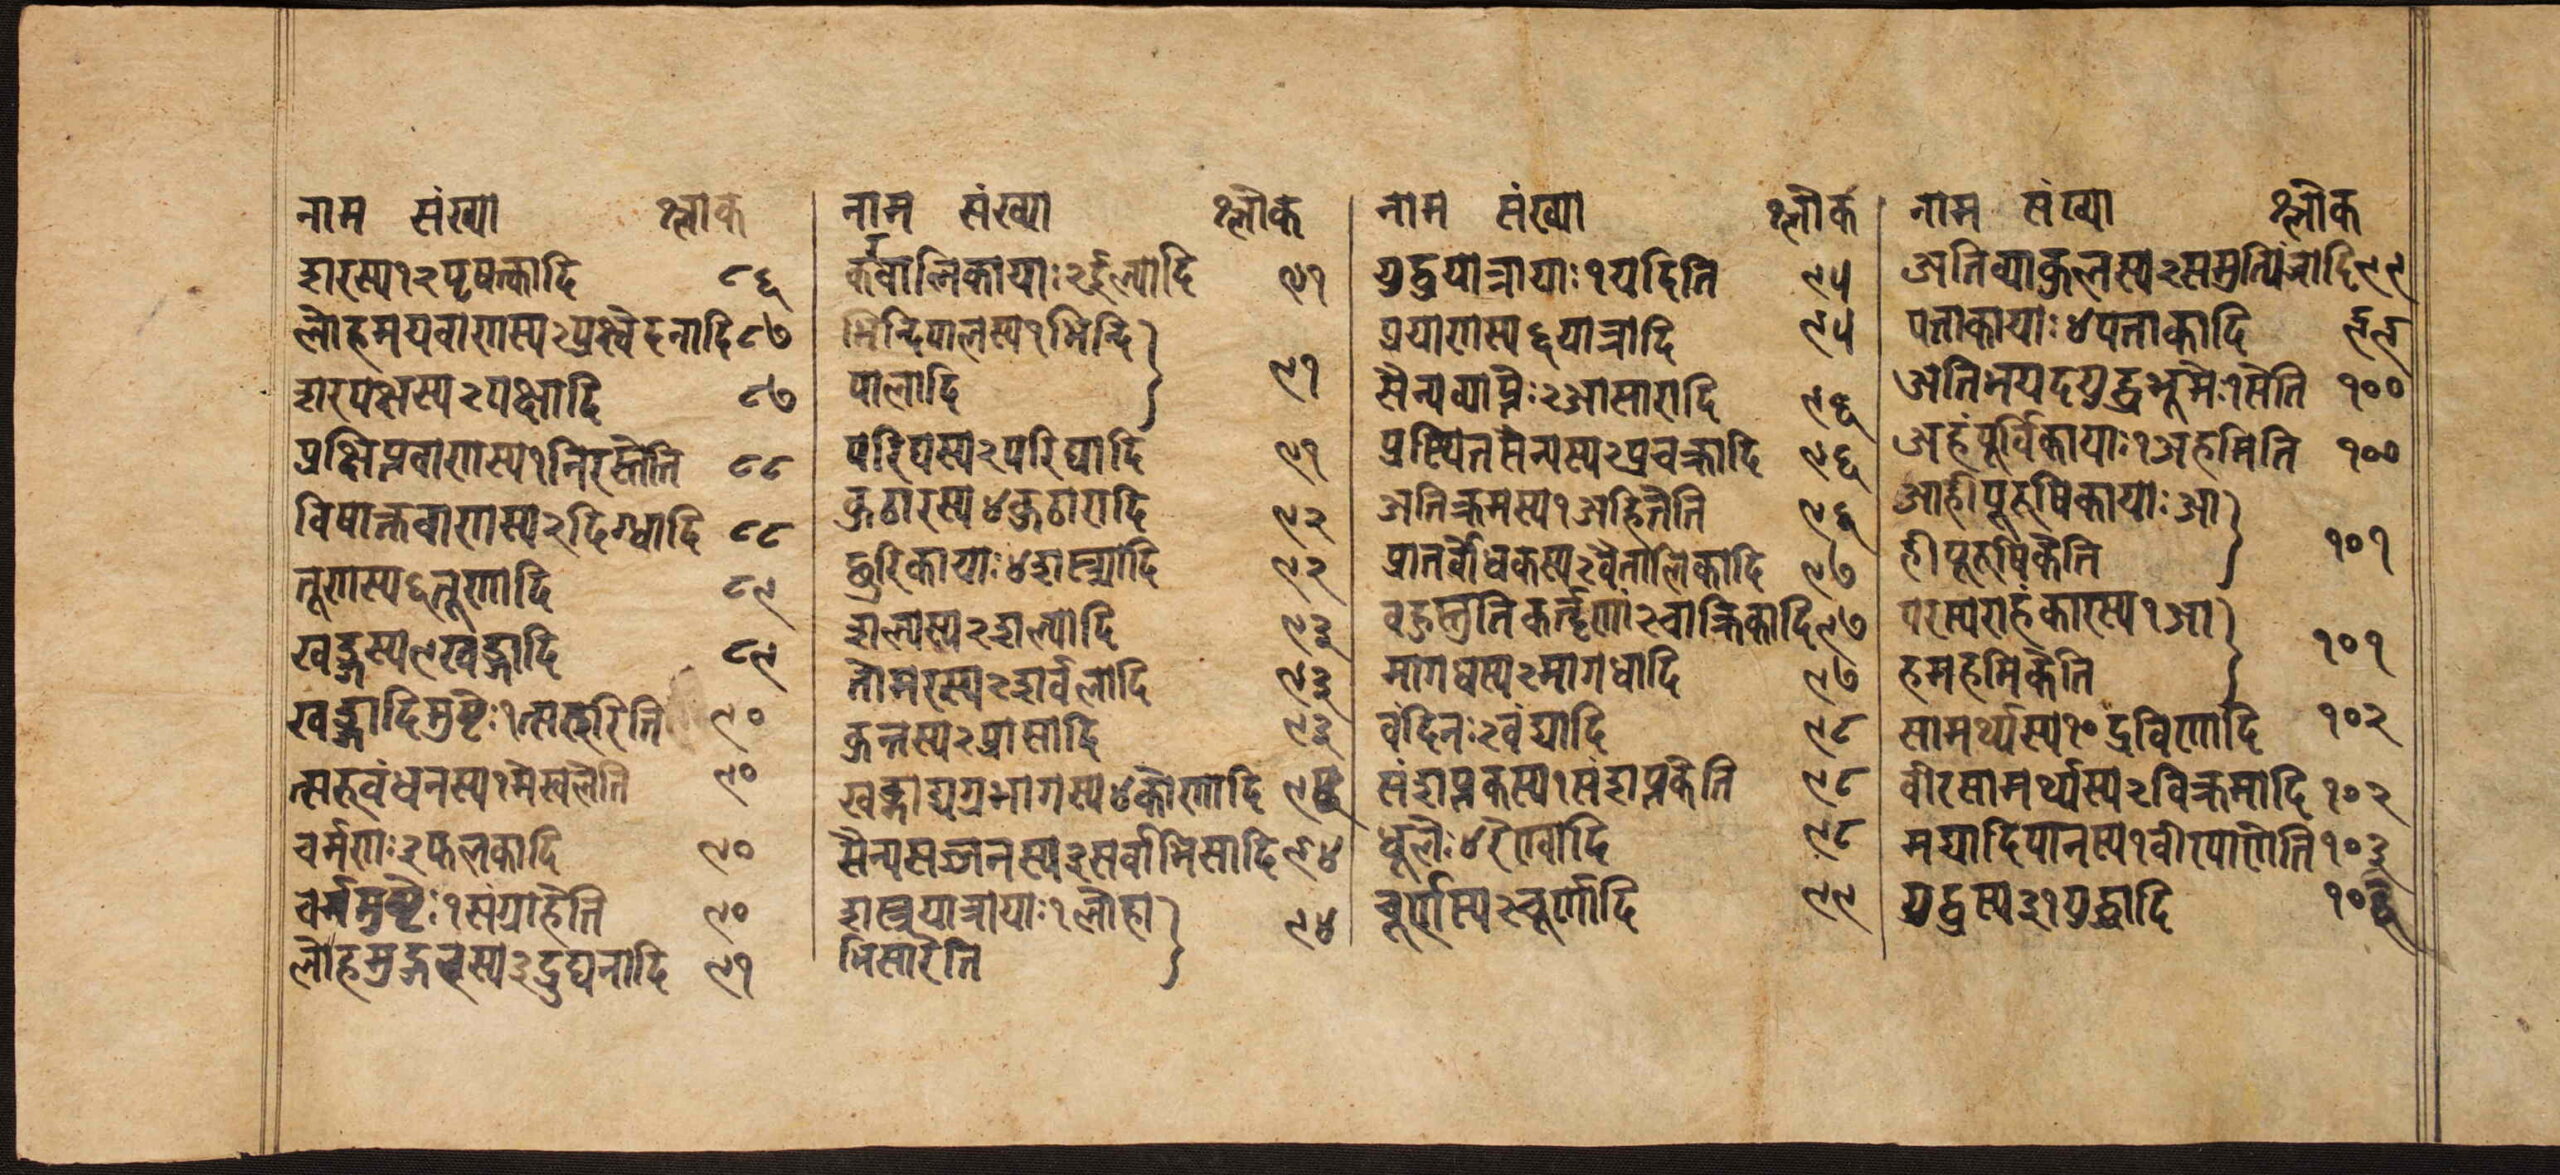 नाम संख्या श्लोक
शरस्य१२पृषत्कादि ८६
लोहमयवाणस्य२प्रक्ष्वेदनादि ८७
शरपक्षस्य२पक्षादि ८७
प्रक्षिप्तवाणस्य१निरस्तेति ८८
विषाक्तवाणस्य२दिग्धादि ८८
तूणस्य६तूणादि ८९
खड्गस्य९खड्गादि ८९
खड्गादिमुष्टेः१त्सरुरिति ९०
त्सरुवंधनस्य१मेखलेति ९०
चर्मणः२फलकादि ९०
चर्ममुष्टेः१संग्राहेति ९०
लोहमुद्गरस्य३द्रुघनादि ९१
नाम संख्या श्लोक
करवालिकायाः२ईल्यादि ९१
भिन्दिपालस्य१भिन्दि
पालादि ९१
परिघस्य२परिघादि ९१
कुठारस्य४कुठारादि ९२
छुरिकायाः४शस्त्र्यादि ९२
शल्यस्य२शल्यादि ९३
तोमरस्य२शर्वलादि ९३
कुन्तस्य२प्रासादि ९३
खड्गाद्यग्रभागस्य४कोणादि
सैन्यसज्जनस्य३सर्वाभिसादि ९४
शस्त्रयात्रायाः१लोहा
भिसारेति ९४
नाम संख्या श्लोक
युद्धयात्रायाः१यदिति ९५
प्रयाणस्य६यात्रादि ९५
सैन्यव्याप्तेः२आसारादि ९६
प्रस्थितसैन्यस्य२प्रचक्रादि ९६
अतिक्रमस्य१अहितेति ९६
प्रातर्वोधकस्य२वैतालिकादि ९७
वहुस्तुतिकर्तॄणां२चाक्रिकादि ९७
मागधस्य२मागधादि ९७
वंदिनः२वंद्यादि ९८
संशप्तकस्य१संशप्तकेति ९८
धूलेः४रेण्वादि ९८
चूर्णस्य२चूर्णादि ९९
नाम संख्या श्लोक
अतिव्याकुलस्य२समुत्पिंजादि ९९
पताकायाः४पताकादि ९९
अतिभयदयुद्धभूमेः१सेति १००
अहंपूर्विकायाः१अहमिति १००
आहोपूरुषिकायाः आ
होपूरुषिकेति १०१
परस्पराहंकारस्य१अ
हमहमिकेति १०१
सामर्थ्यस्य१०द्रविणादि १०२
वीरसामर्थ्यस्य२विक्रमादि १०२
मद्यादिपानस्य१वीरपाणेति १०३
युद्धस्य३१युद्धादि १०३